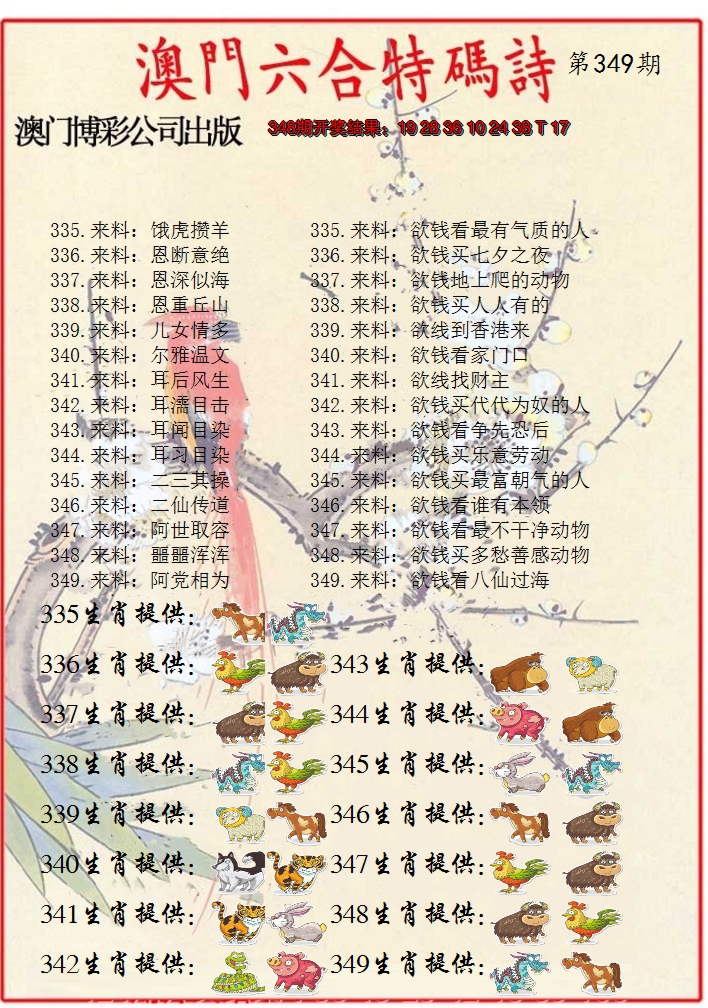 澳門六合特碼詩 第349期
澳门博彩公司出版 348期开奖结果：19 28 36 10 24 38 T 17
335.来料：饿虎攒羊 335.来料：欲钱看最有气质的人
336.来料：恩断意绝 336.来料：欲钱买七夕之夜
337.来料：恩深似海 337.来料：欲钱地上爬的动物
338.来料：恩重丘山 338.来料：欲钱买人人有的
339.来料：儿女情多 339.来料：欲线到香港来
340.来料：尔雅温文 340.来料：欲钱看家门口
341.来料：耳后风生 341.来料：欲线找财主
342.来料：耳濡目击 342.来料：欲钱买代代为奴的人
343.来料：耳闻目染 343.来料：欲钱看争先恐后
344.来料：耳习目染 344.来料：欲钱买乐意劳动
345.来料：二三其操 345.来料：欲钱买最富朝气的人
346.来料：二仙传道 346.来料：欲钱看谁有本领
347.来料：阿世取容 347.来料：欲钱看最不干净动物
348.来料：噩噩浑浑 348.来料：欲钱买多愁善感动物
349.来料：阿党相为 349.来料：欲钱看八仙过海
335生肖提供：
336生肖提供： 343生肖提供：
337生肖提供： 344生肖提供：
338生肖提供： 345生肖提供：
339生肖提供： 346生肖提供：
340生肖提供： 347生肖提供：
341生肖提供： 348生肖提供：
342生肖提供： 349生肖提供：